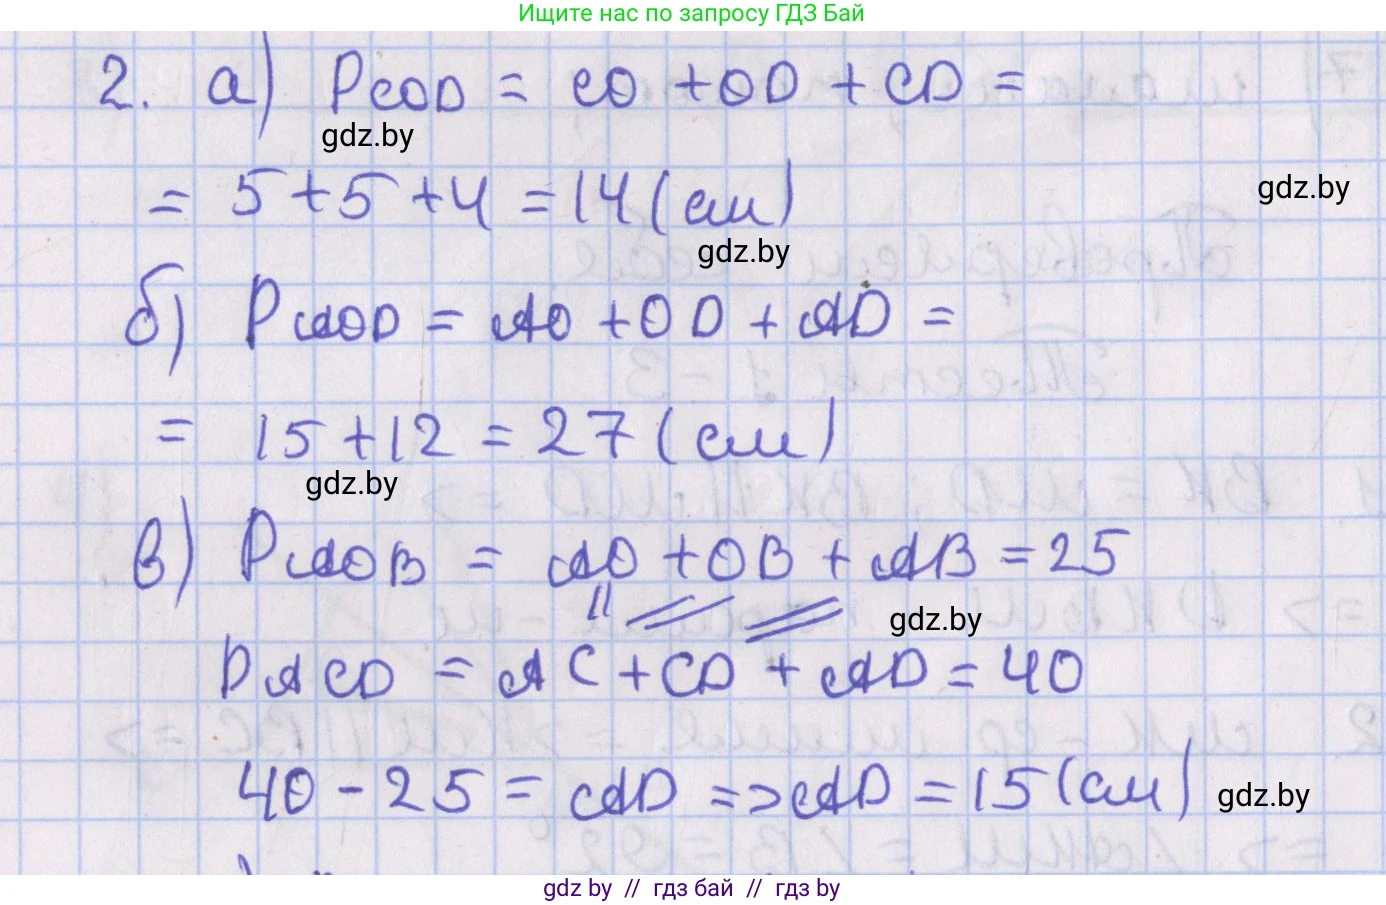 Ищите нас по запросу ГДЗ Бай
2. а) PCOD = CO + OD + CD =
gdz.by
= 5 + 5 + 4 = 14 (см)
gdz.by
gdz.by
б) PAOD = AO + OD + AD =
= 15 + 12 = 27 (см)
gdz.by
в) PAOB = AO + OB + AB = 25
gdz.by
PACD = AC + CD + AD = 40
40 - 25 = AD => AD = 15 (см)
gdz.by
gdz by // гдз бай // гдз by